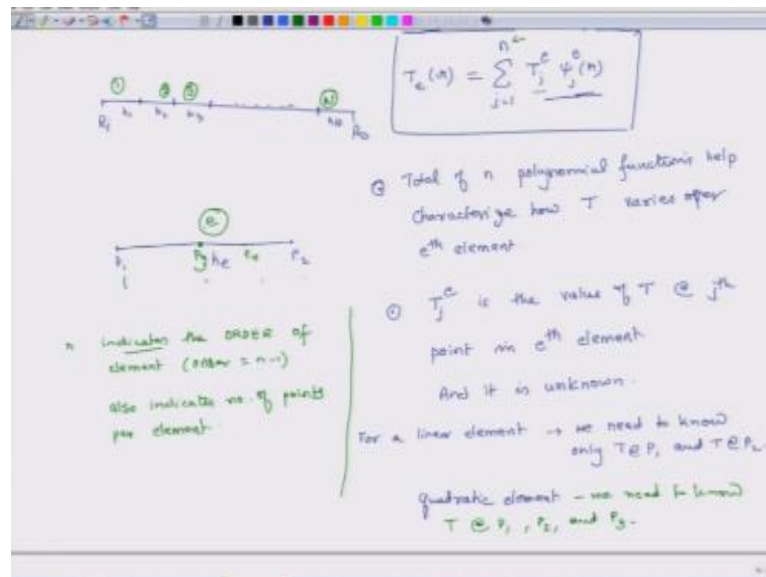 ① ② ③ N
R₁ h₁ h₂ h₃ R₀
T_e(r) = Σ_{j=1}^{n} T_j^e ψ_j^e(r)
e
P₁ P₃ h_e P₄ P₂
n indicates the ORDER of
element (order = n-1)
also indicates no. of points
per element.
Total of n polynomial functions help
characterize how T varies over
eth element
T_j^e is the value of T @ jth
point in eth element
And it is unknown.
For a linear element → we need to know
only T@P₁ and T@P₂.
quadratic element - we need to know
T @ P₁, P₂, and P₃.